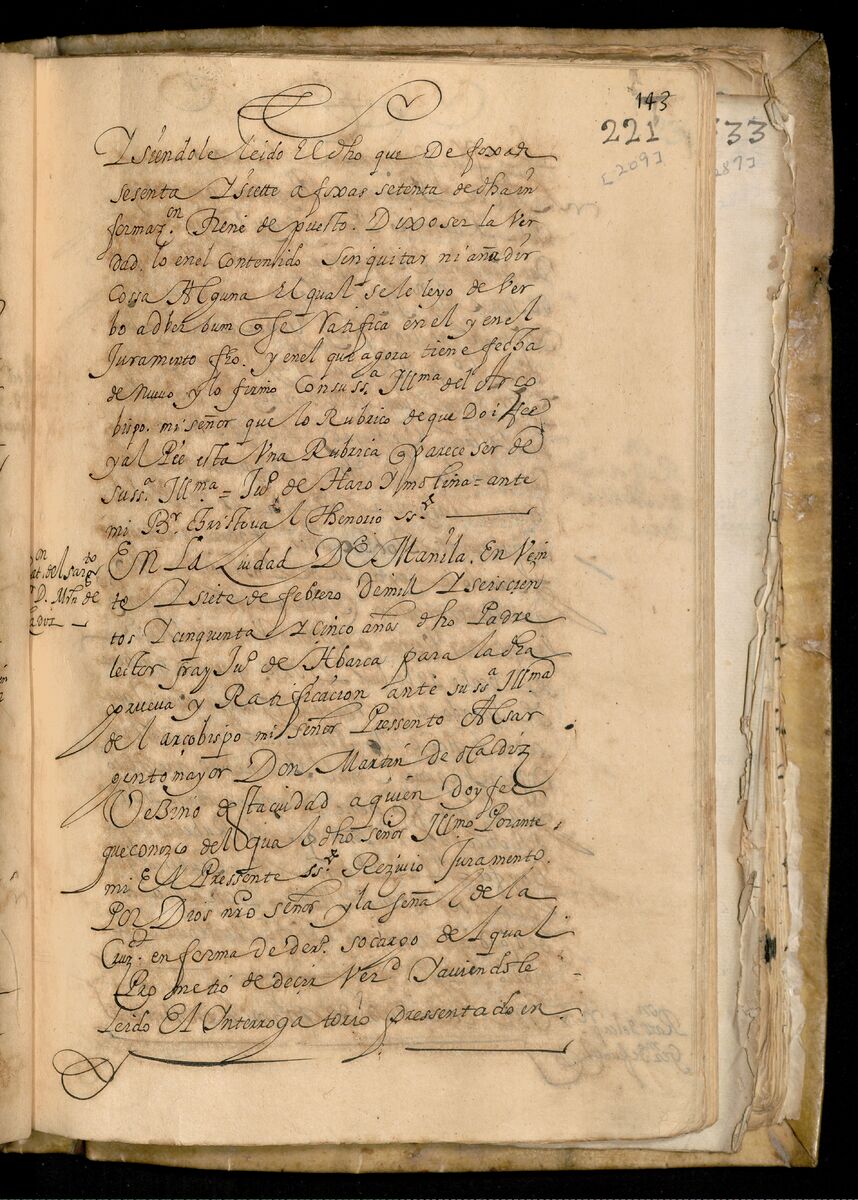 143
221
[209]
33
287]
Ysiendole leido El dho que De foxa de
sesenta Y siette a foxas setenta de dha in
formazon. Tiene de puesto. Dixo ser la Ver
dad. lo en el Contenido sin quitar ni añadir
Cossa Alguna El qual se le leyo de Ver
bo ad Verbum q se Ratifica en el y en el
Juramento fho. y en el que agora tiene fecha
de nuevo y lo firmo Con su ssa. Illma del Arço
bispo. mi señor que lo Rubrico de que Doi fee
y al Pie esta Una Rubrica q parece ser de
su ssa. Illma = Juo de Haro Y molina = ante
mi Br. Christoval Thenorio ssrio
En La Ciudad De Manila. En Vein
te Y siete de febrero de mill Y seiscien
tos Y cinquenta Y cinco años dho Padre
lector fray Juo de Abarca para la dha
prueva y Ratificacion ante su ssa Illma
del arcobispo mi señor Pressento Al sar
gento mayor Don Martin de Cladiz
Vebino de sta ciudad a quien doy fee
que conozco del qual dho señor Illmo Por ante
mi El Pressente ssrio Rezivio Juramento.
Por Dios nro señor y la señal de la
Cruz. en forma de dero. so cargo de el qual
Prometió de decir Verd Y aviendole
leido El Interrogatorio pressentado en.
on
at. del sarto
D. Mrn de